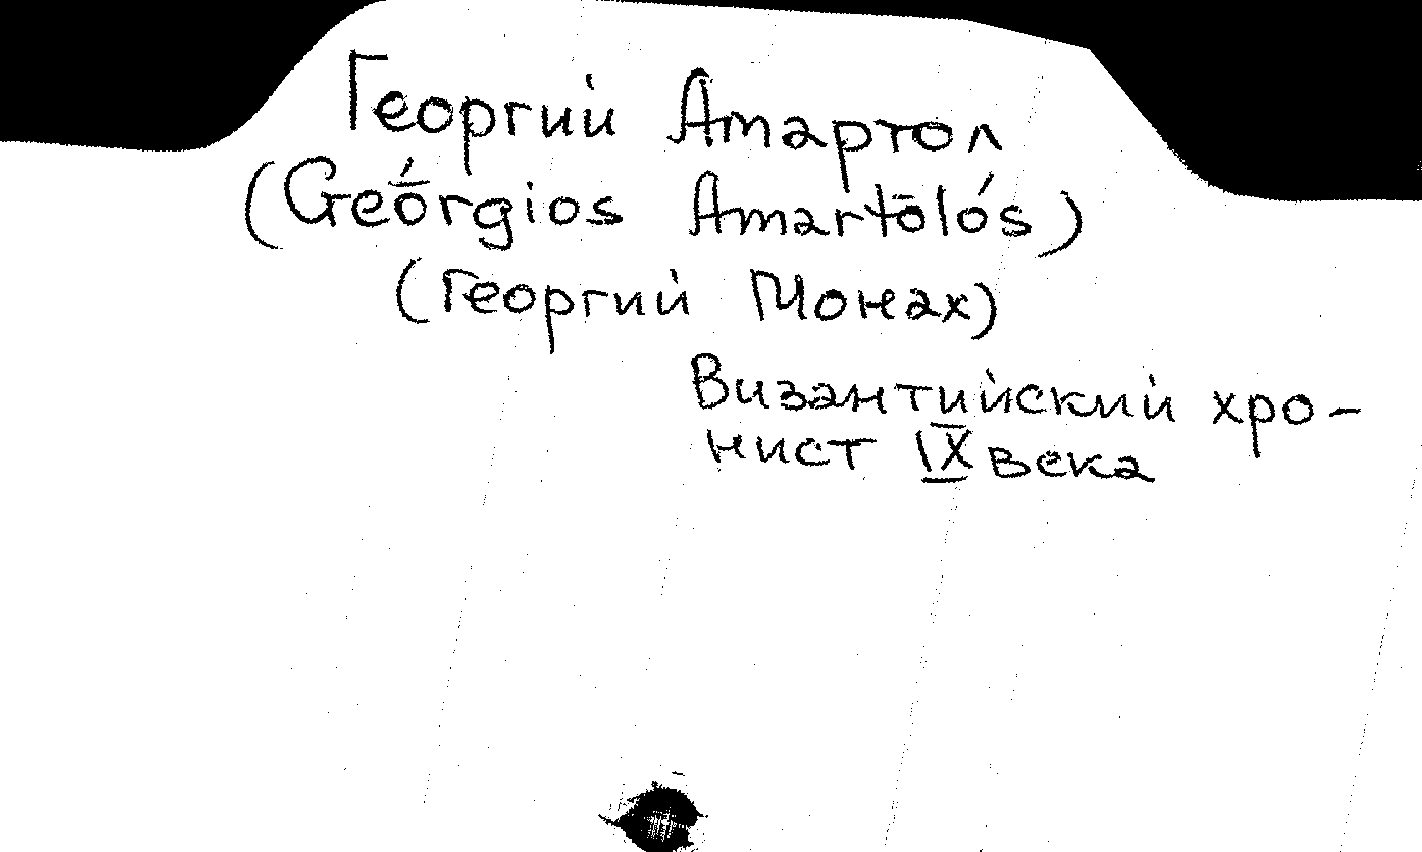 Георгий Амартол
(Geṓrgios Amartōlós)
(Георгий Монах)
Византийский хро-
нист IX века